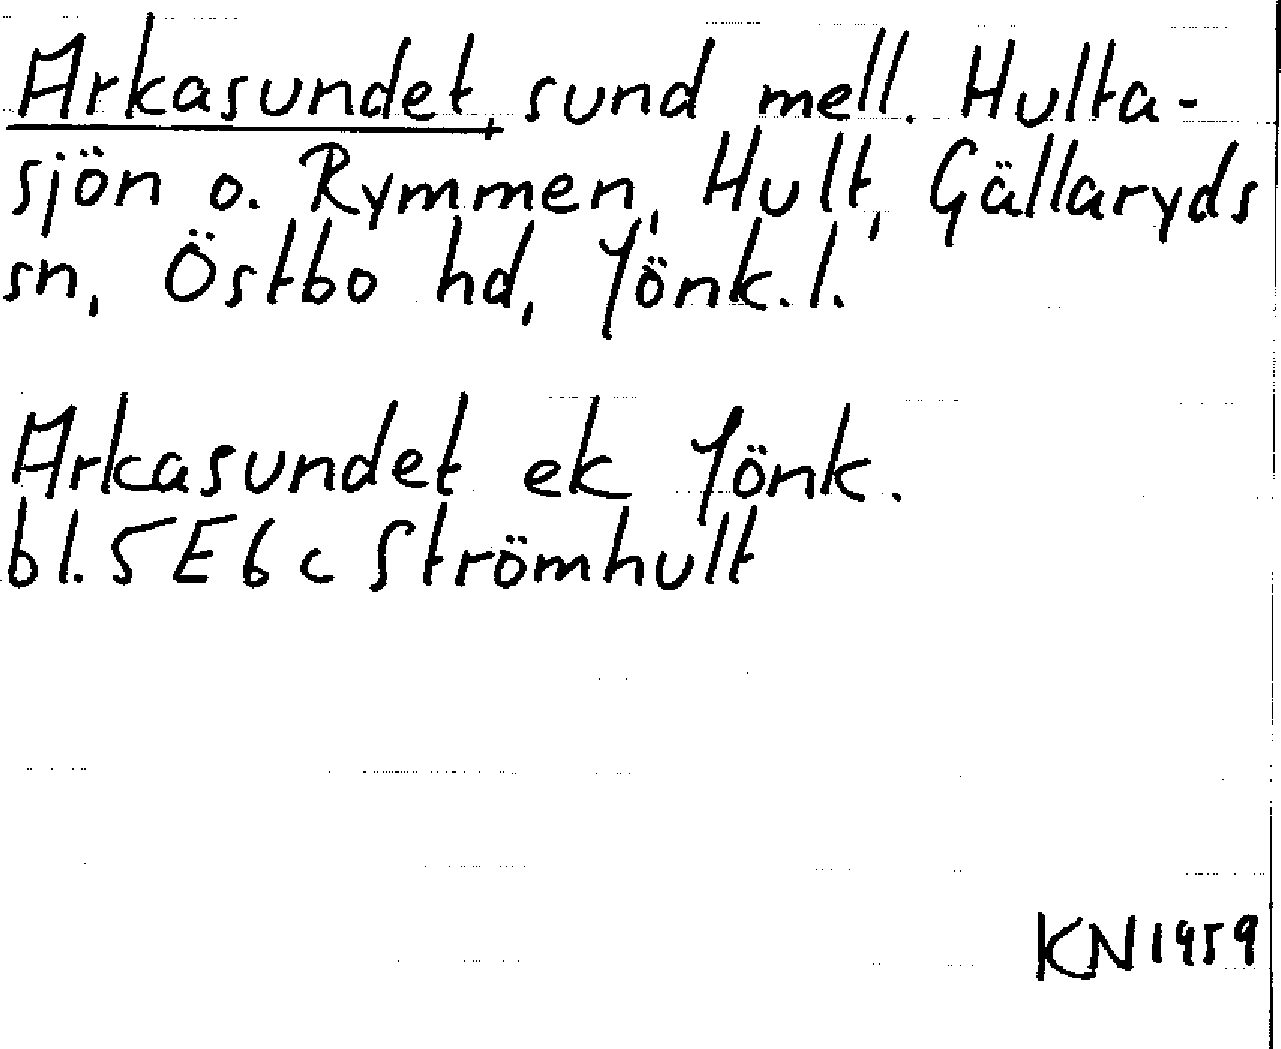 Arkasundet, sund mell. Hulta-
sjön o. Rymmen, Hult, Gällaryds
sn, Östbo hd, Jönk. l.
Arkasundet ek Jönk.
bl. 5E6c Strömhult
KN 1959